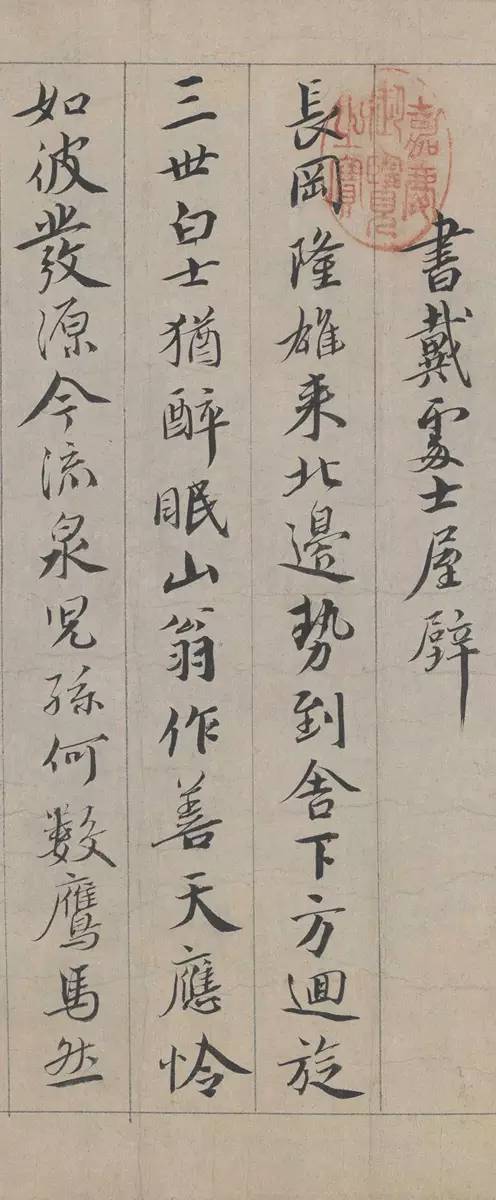 嘉慶御覽之寶
書戴處士屋壁
長岡隆雄来北邊勢到舍下方迴旋
三世白士猶醉眠山翁作善天應憐
如彼發源今流泉兒孫何數鷹馬然